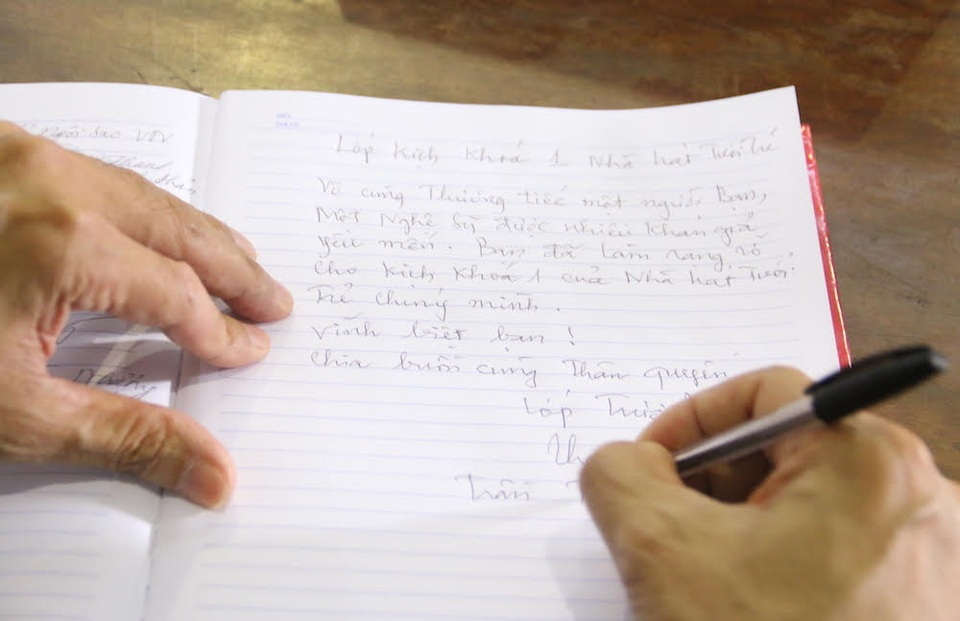 Ngôi sao VTV
Lớp kịch khoá 1 Nhà hát Tuổi Trẻ
Vô cùng Thương tiếc một người Bạn,
Một Nghệ sỹ được nhiều khán giả
yêu mến. Bạn đã làm rạng rỡ
cho kịch khoá 1 của Nhà hát Tuổi
Trẻ chúng mình.
Vĩnh biệt bạn!
Chia buồn cùng Thân quyến
Lớp
Trần